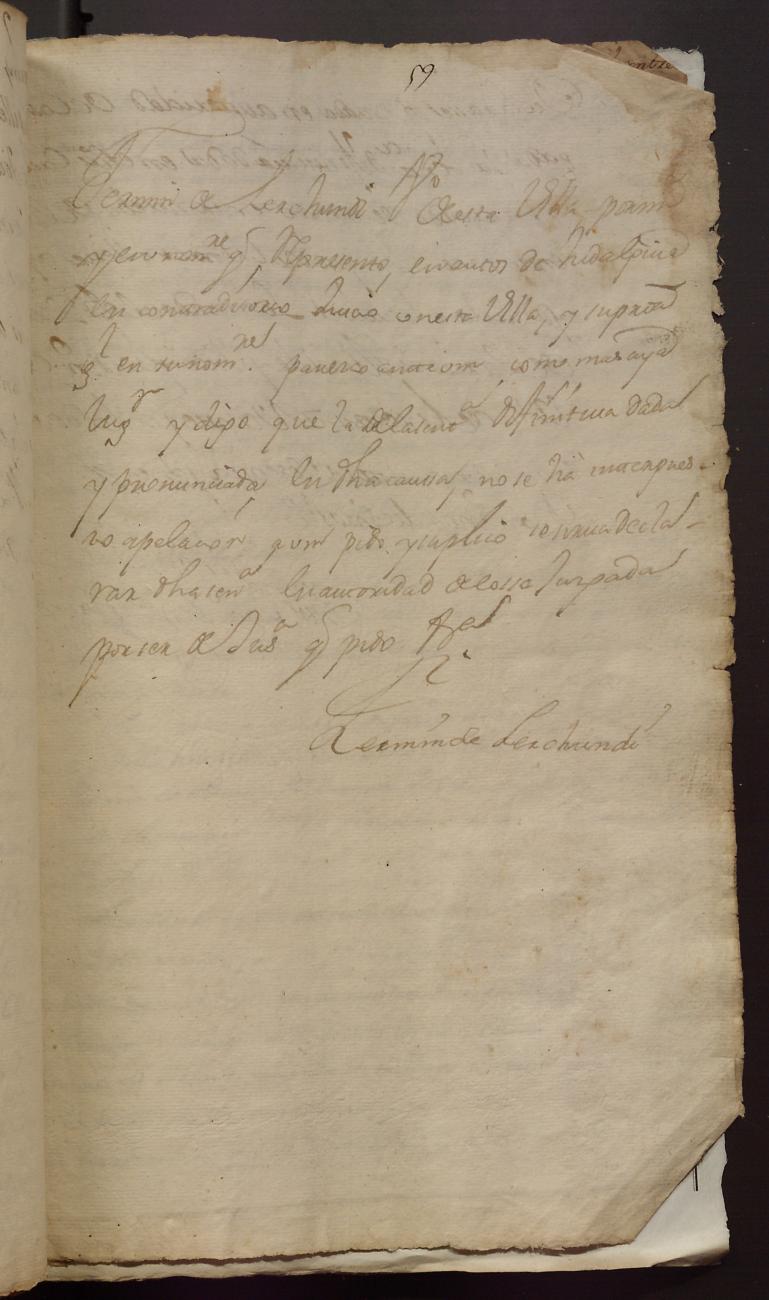 59
Fermin de Lerchundi Vº de esta Villa por mi
y en nomre q Represento, en autos de hidalguia
En contradictorio Juicio con esta Villa, y su
q en su nomre. parezco ante vm, como mas aya
lugr y digo que la de la sena difinitiua dada
y pronunciada En dha caussa, no se ha interpues-
to apelacion, a vm pido, y suplico se sirua decla-
rar dha sena En autoridad de cossa Juzgada
por ser de Jusa q pido Va
Fermin de Lerchundi